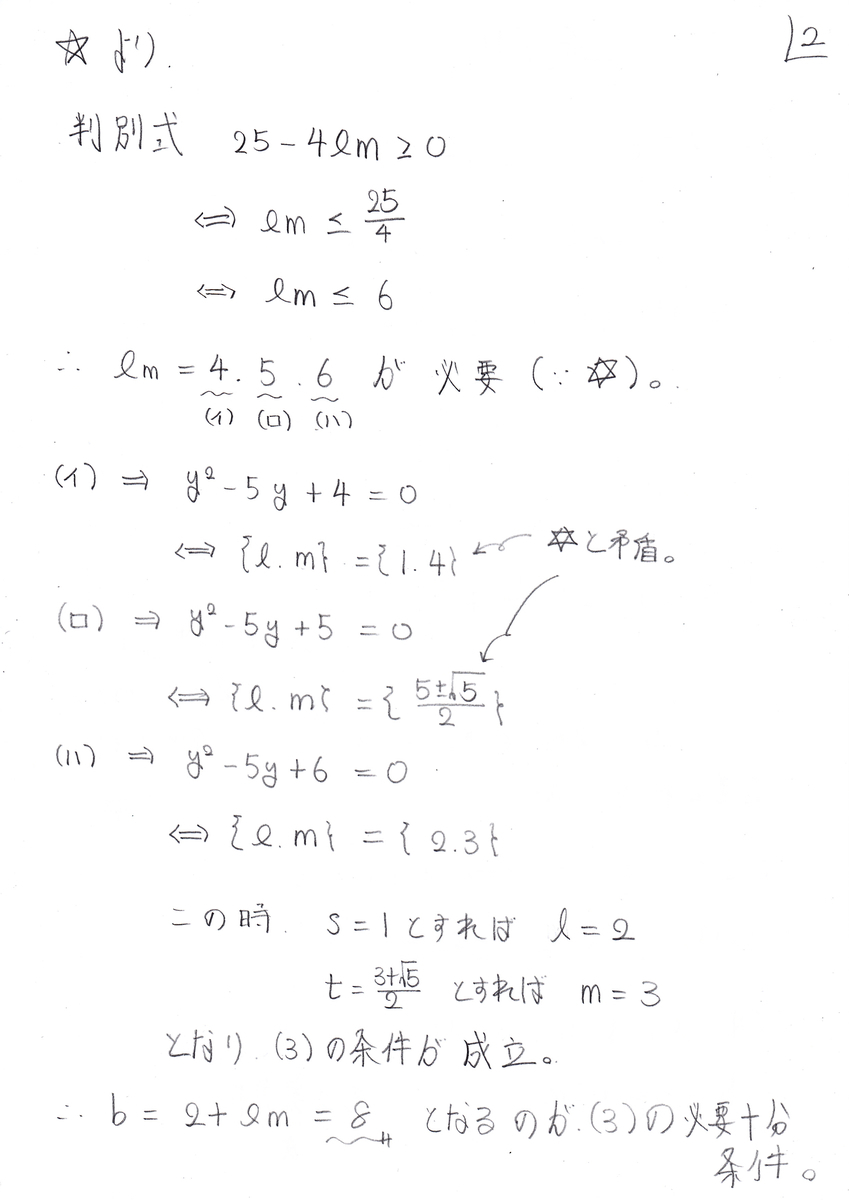 2
☆ より.
判別式 25 - 4lm ≥ 0
⇔ lm ≤ 25/4
⇔ lm ≤ 6
∴ lm = 4. 5. 6 が 必要 (∵ ✡)。
(イ) (ロ) (ハ)
(イ) ⇒ y² - 5y + 4 = 0
⇔ {l. m} = {1. 4} ← ✡と矛盾。
(ロ) ⇒ y² - 5y + 5 = 0
⇔ {l. m} = { (5±√5)/2 }
(ハ) ⇒ y² - 5y + 6 = 0
⇔ {l. m} = { 2.3 }
この時. s = 1 とすれば l = 2
t = (3+√5)/2 とすれば m = 3
となり. (3) の条件が 成立。
∴ b = 2 + lm = 8 となるのが. (3) の必要十分
条件。